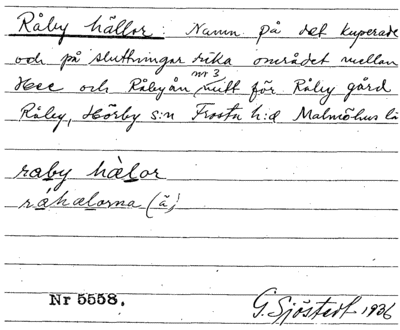 Råby hällor: Namn på det kuperade
och på sluttningar rika området mellan
Hee och Råbyån nr 3 mitt för Råby gård
Råby, Hörby s:n Frosta h:d Malmöhus lä
raby hàlor
ráhalorna (ä)
Nr 5558.
G. Sjöstedt 1936